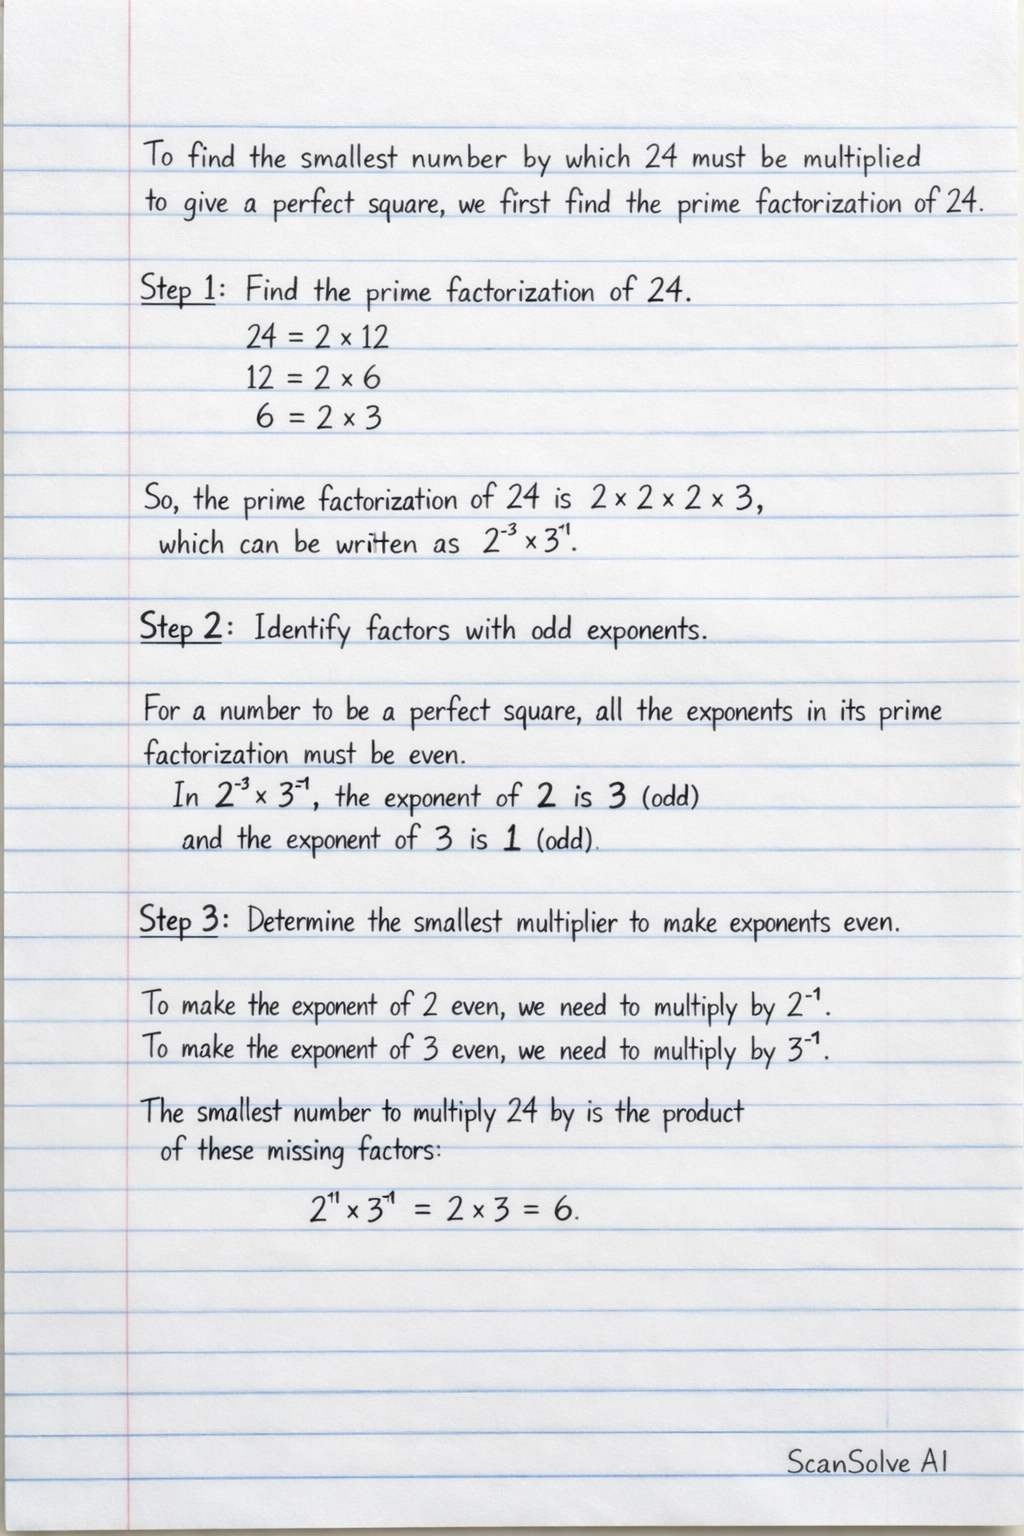 To find the smallest number by which 24 must be multiplied
to give a perfect square, we first find the prime factorization of 24.
Step 1: Find the prime factorization of 24.
24 = 2 × 12
12 = 2 × 6
6 = 2 × 3
So, the prime factorization of 24 is 2 × 2 × 2 × 3,
which can be written as 2⁻³ × 3⁻¹.
Step 2: Identify factors with odd exponents.
For a number to be a perfect square, all the exponents in its prime
factorization must be even.
In 2⁻³ × 3⁻¹, the exponent of 2 is 3 (odd)
and the exponent of 3 is 1 (odd).
Step 3: Determine the smallest multiplier to make exponents even.
To make the exponent of 2 even, we need to multiply by 2⁻¹.
To make the exponent of 3 even, we need to multiply by 3⁻¹.
The smallest number to multiply 24 by is the product
of these missing factors:
2¹¹ × 3⁻¹ = 2 × 3 = 6.
ScanSolve AI